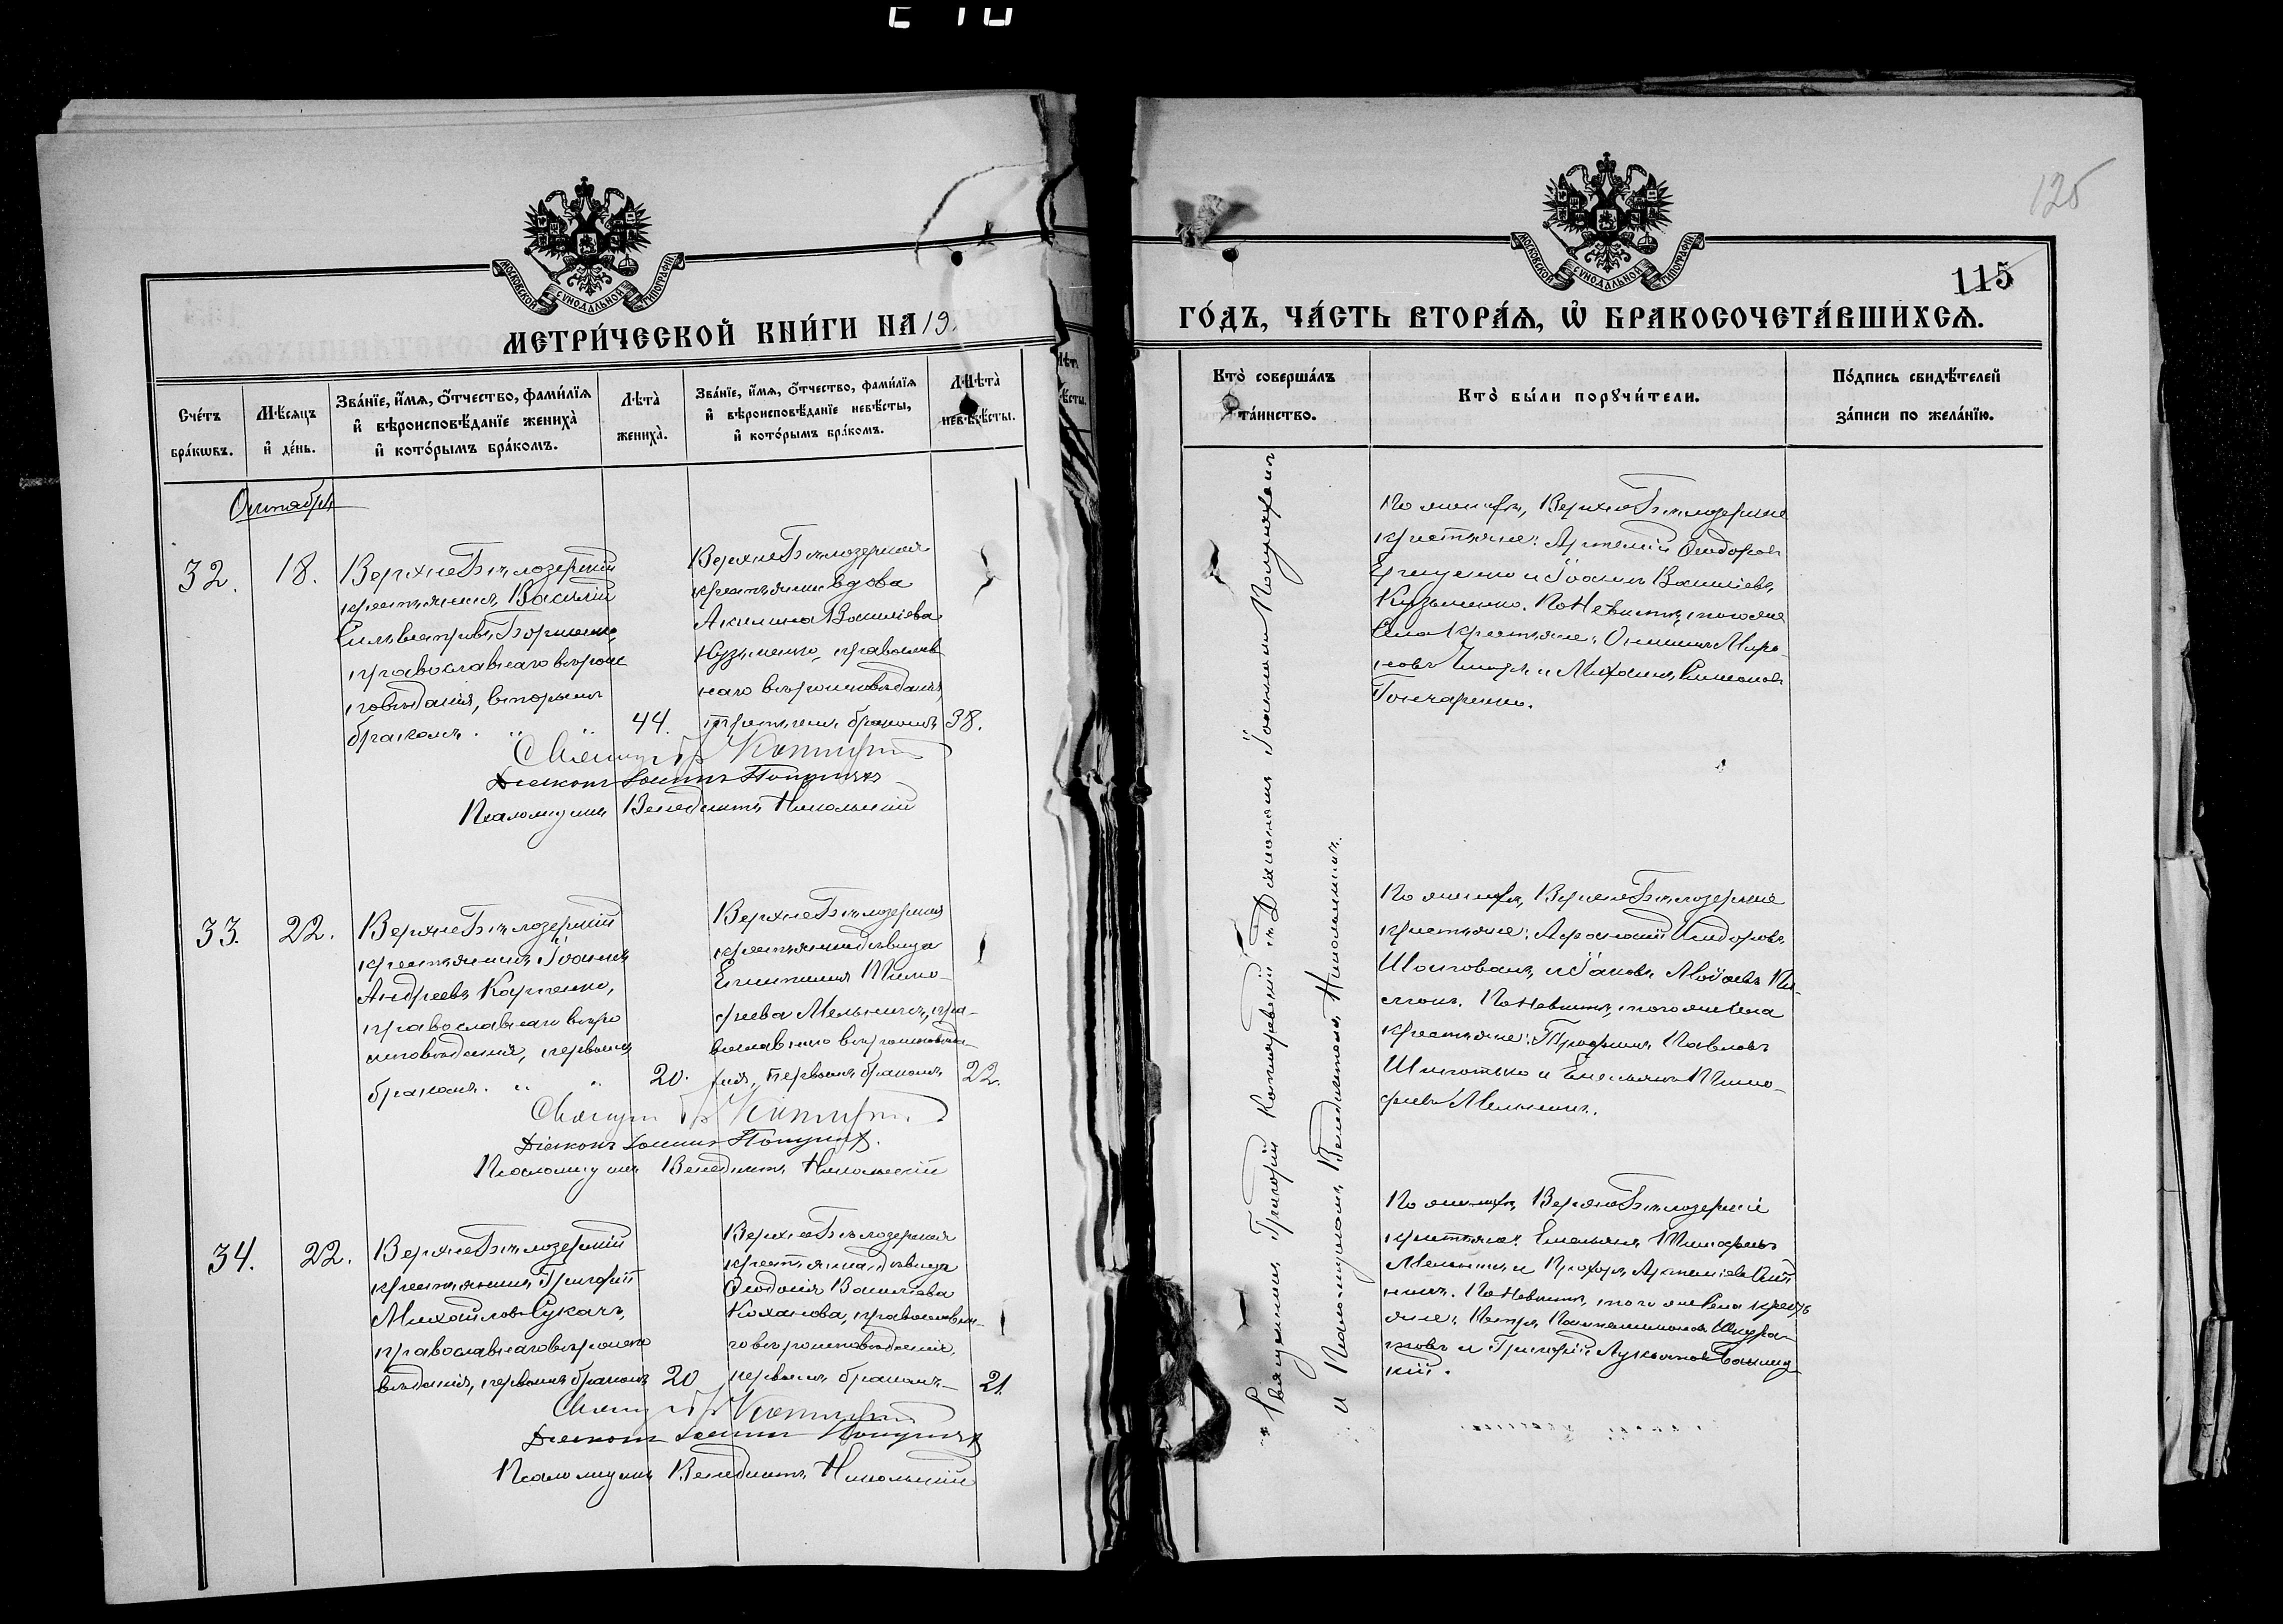 125
115
МОСКОВСКОЙ СѴНОДАЛЬНОЙ ТИПОГРАФІИ
МЕТРИ́ЧЕСКОЙ КНИ́ГИ НА 19.
Сче́тъ бра́кѡвъ.
Мѣ́сяцъ и҆ де́нь.
Зва́нїе, и҆́мѧ, ѻ҆́тчество, фами́лїѧ
и҆ вѣроисповѣ́данїе жениха̀
и҆ кото́рымъ бра́комъ.
Лѣта̀ жениха̀.
Зва́нїе, и҆́мѧ, ѻ҆́тчество, фами́лїѧ
и҆ вѣроисповѣ́данїе невѣ́сты,
и҆ кото́рымъ бра́комъ.
Лѣта̀ невѣ́сты.
Октября
32.
18.
ВерхнеБѣлозерскій
крестьянинъ Василій
Сильвестровъ Борщенко,
православнаго вѣроис
повѣданія, вторымъ
бракомъ. " "
44.
ВерхнеБѣлозерская
крестьянка вдова
Акилина Васильева
Кузьменко, православ
наго вѣроисповѣданія
третьимъ бракомъ
38.
Священникъ Гр Котляр
Діаконъ Іоаннъ
Псаломщикъ Венедиктъ Никольскій
33.
22.
ВерхнеБѣлозерскій
крестьянинъ Іоаннъ
Андреевъ Карпенко,
православнаго вѣро
исповѣданія, первымъ
бракомъ. " "
20.
ВерхнеБѣлозерская
крестьянка дѣвица
Тимо-
феева Мельникъ, пра-
вославнаго вѣроисповѣда-
нія, первымъ бракомъ
22.
Священникъ Гр Котляр
Діаконъ Іоаннъ
Псаломщикъ Венедиктъ Никольскій
34.
22.
ВерхнеБѣлозерскій
крестьянинъ Григорій
Михайловъ Сукачъ,
православнаго вѣроиспо
вѣданія, первымъ бракомъ
20
ВерхнеБѣлозерская
крестьянка, дѣвица
Ѳеодосія Васильева
Коханова, православна-
го вѣроисповѣданія,
первымъ бракомъ
21.
Священникъ Гр Котляр
Діаконъ Іоаннъ
Псаломщикъ Венедиктъ Никольскій
МОСКОВСКОЙ СѴНОДАЛЬНОЙ ТИПОГРАФІИ
ГО́ДЪ, ЧА́СТЬ ВТОРА́Я, Ѡ҆ БРАКОСОЧЕТА́ВШИХСѦ.
Кто̀ соверша́лъ та́инство.
Кто̀ бы́ли порꙋчи́тели.
По́дпись свидѣ́телей
за́писи по жела́нїю.
Священникъ Григорій Котляревскій съ Діакономъ Іоанномъ
и Псаломщикомъ Венедиктомъ Никольскимъ.
По женихѣ, ВерхнеБѣлозерскіе
крестьяне: Артемій Ѳеодоровъ
и Іоаннъ Васильевъ
Кузьменко. По Невѣстѣ, того же
Села крестьяне: Миро-
новъ и Михаилъ Симеоновъ
Гончаренко.
По женихѣ, ВерхнеБѣлозерскіе
крестьяне: Аѳанасій
и Іаковъ
По невѣстѣ, того же Села
крестьяне: Трофимъ Павловъ
и Емельянъ Тимо-
феевъ Мельникъ.
По женихѣ, ВерхнеБѣлозерскіе
крестьяне: Емельянъ Тимофеевъ
Мельникъ и Прохоръ Артемьевъ
По Невѣстѣ, того же Села кресть
яне: Петръ Пантелеимоновъ
и Григорій Лукьяновъ